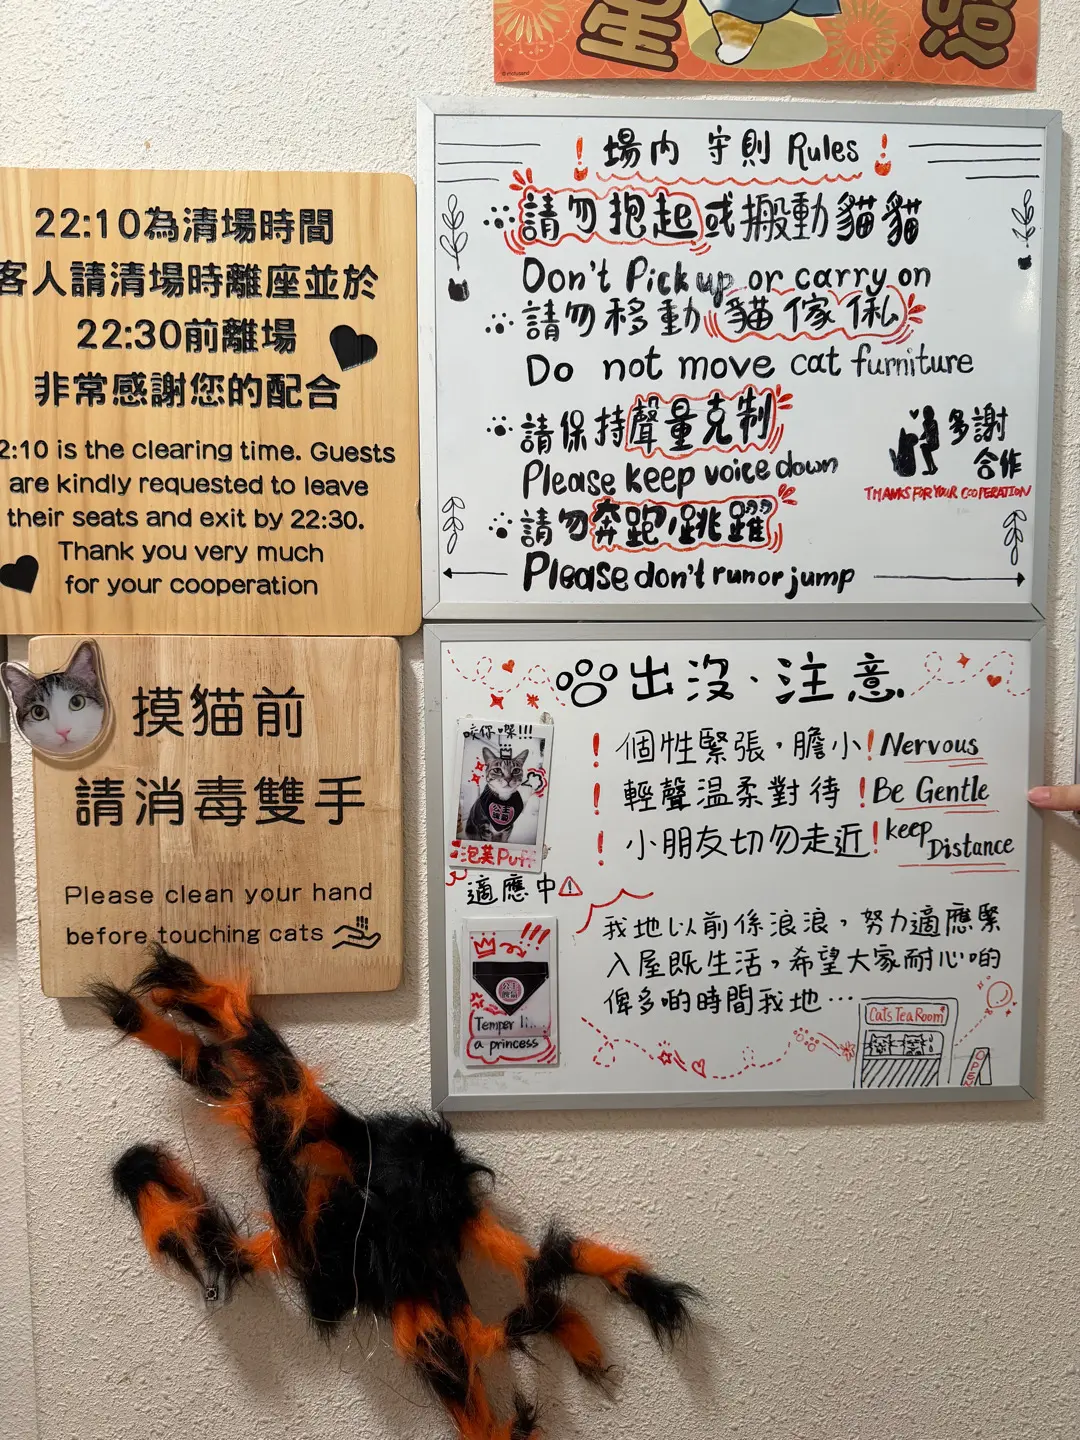 22:10為清場時間
客人請清場時離座並於
22:30前離場
非常感謝您的配合
2:10 is the clearing time. Guests
are kindly requested to leave
their seats and exit by 22:30.
Thank you very much
for your cooperation
摸貓前
請消毒雙手
Please clean your hand
before touching cats
! 場內 守則 Rules !
請勿抱起或搬動貓貓
Don't Pick up or carry on
請勿移動貓傢俬
Do not move cat furniture
請保持聲量克制
Please keep voice down
請勿奔跑/跳躍
Please don't run or jump
多謝
合作
THANKS FOR YOUR COOPERATION
出沒·注意
! 個性緊張，膽小! Nervous
! 輕聲溫柔對待! Be Gentle
! 小朋友切勿走近! keep Distance
咬你㗎!!!
泡芙Puff
適應中
!!!
Temper li
a princess
我地以前係浪浪，努力適應緊
入屋既生活，希望大家耐心啲
俾多啲時間我地…
Cats Tea Room
OPEN